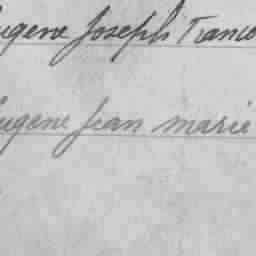 ugene Joseph Franco
ugene Jean marie